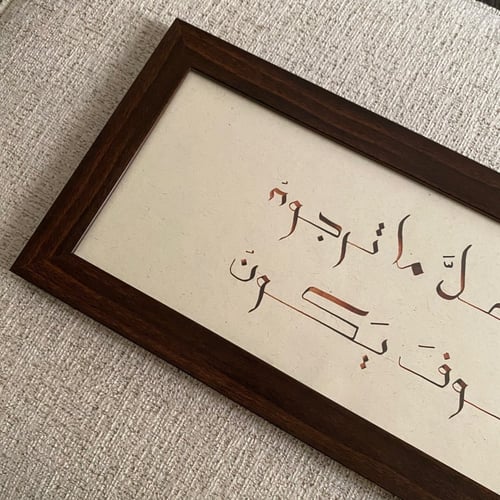 ـعلَّ ما ترجوهُ
ـوفَ يَكونُ